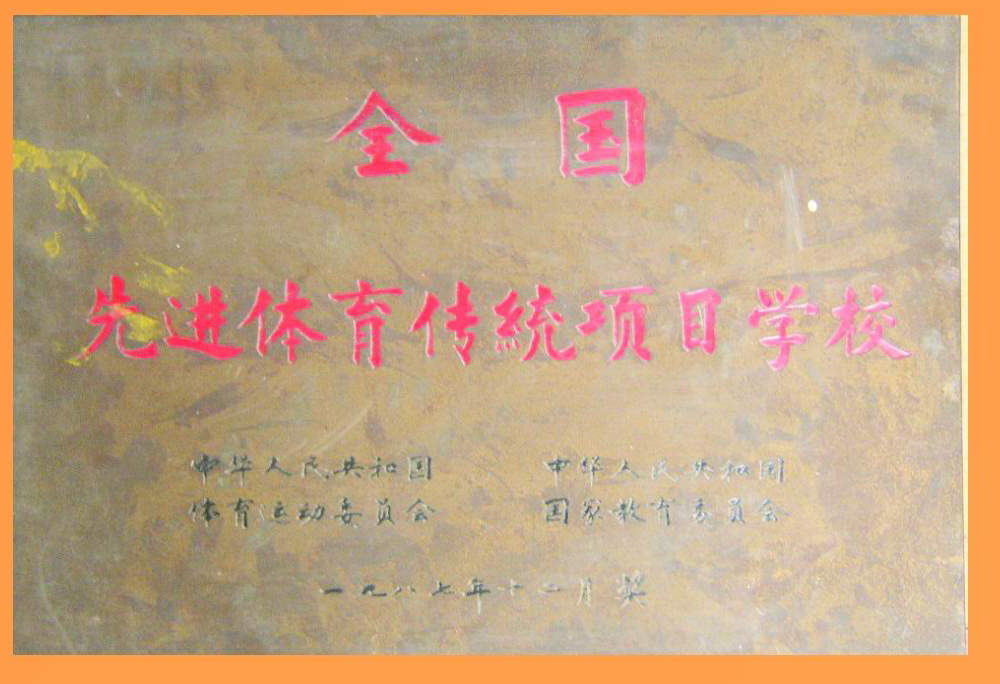 全国
先进体育传統项目学校
中华人民共和国 中华人民共和国
体育运动委员会 国家教育委员会
一九八七年十二月奖